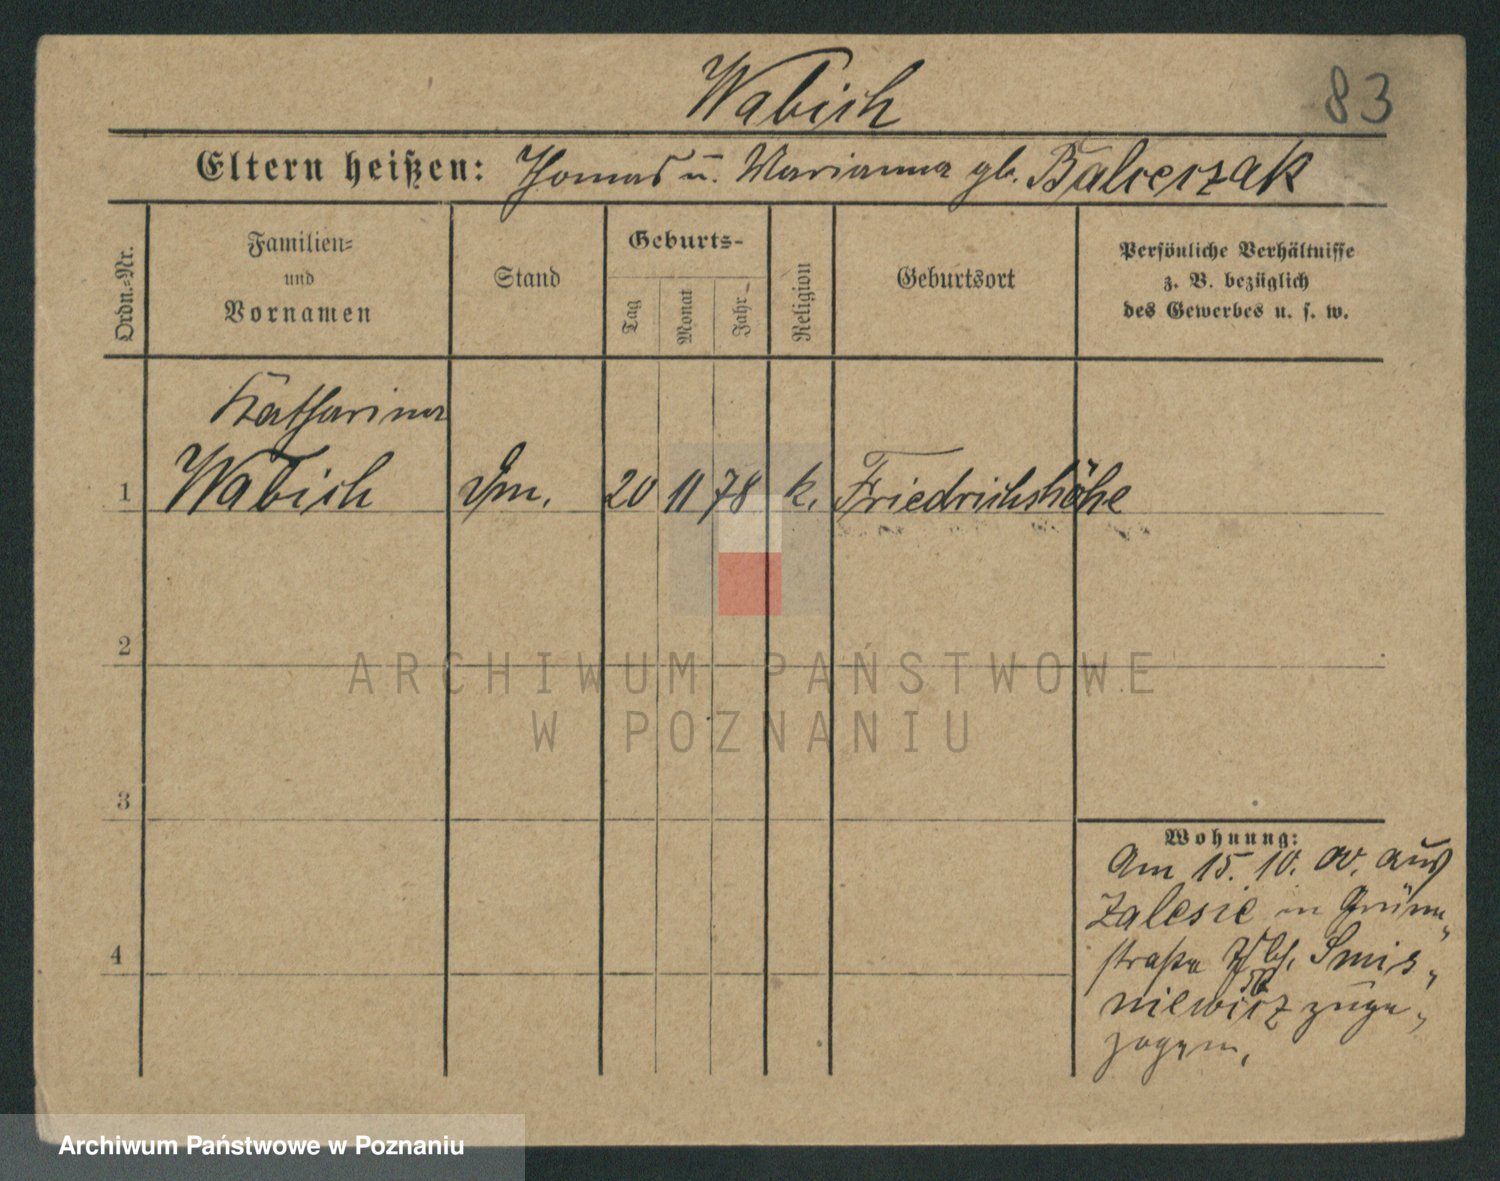 Wabich
83
Eltern heißen: Thomas u. Marianna gb. Balcerzak
Ordn.-Nr.
Familien-
und
Vornamen
Stand
Geburts-
Tag
Monat
Jahr
Religion
Geburtsort
Persönliche Verhältnisse
z. B. bezüglich
des Gewerbes u. s. w.
Katharina
1 Wabich 20 11 78 k. Friedrichshöhe
2
ARCHIWUM PAŃSTWOWE
W POZNANIU
3
4
Wohnung:
Am 15. 10. 00. aus
Zalesie in Grün-
straße b. Smis-
niewicz zuge-
zogen.
Archiwum Państwowe w Poznaniu